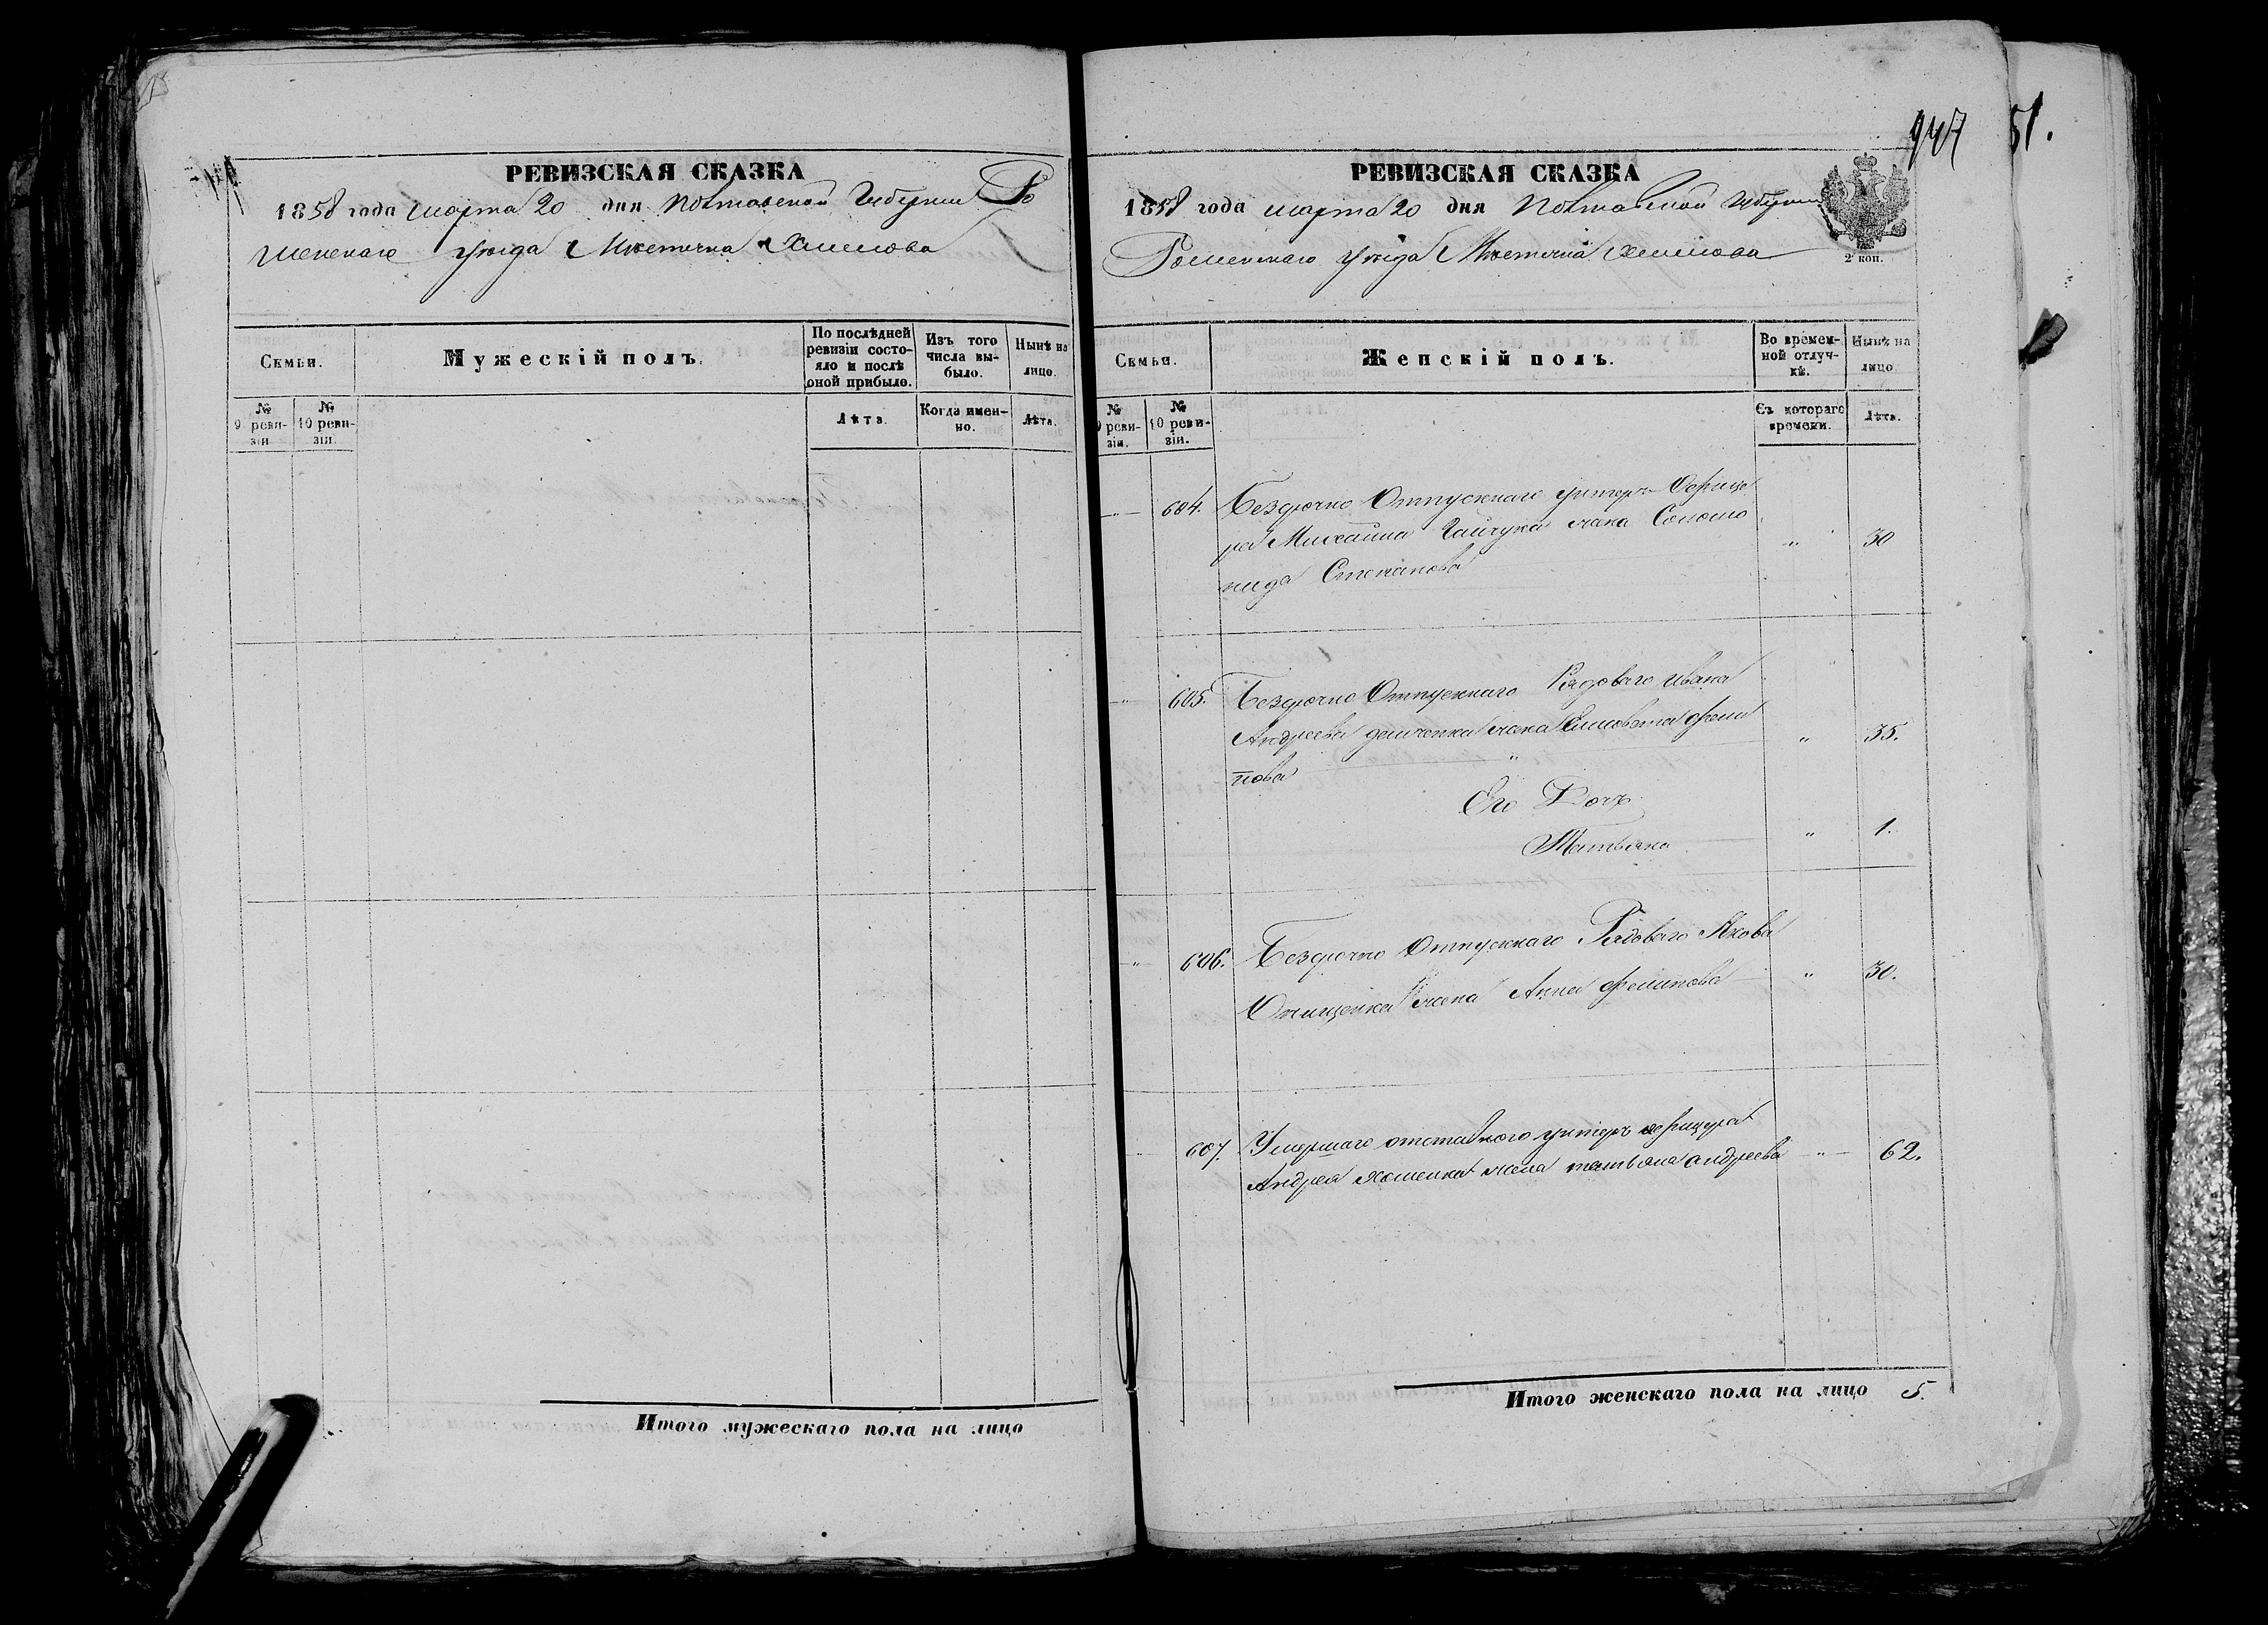 РЕВИЗСКАЯ СКАЗКА
1858 года марта 20 дня Полтавской Губернии Ро
менскаго уѣзда Мѣстечка Хмелова
Семьи.
Мужескій полъ.
По послѣдней ревизіи состояло и послѣ оной прибыло.
Изъ того числа выбыло.
Нынѣ на лицо.
№ 9 ревизіи
№ 10 ревизіи.
Лѣта.
Когда именно.
Лѣта.
Итого мужескаго пола на лицо
947
51.
РЕВИЗСКАЯ СКАЗКА
1858 года марта 20 дня Полтавской Губернии
Роменскаго уѣзда Мѣстечка Хмелова
2 коп.
Семьи.
Женскій полъ.
Во временной отлучкѣ.
Нынѣ на лицо
№ 9 ревизіи.
№ 10 ревизіи.
Съ котораго времени.
Лѣта.
604. Безсрочно Отпускнаго унтеръ Офице
ра Михайла жена Соломо " 30
нида Степанова
605. Безсрочно Отпускнаго Рядоваго Ивана
Андреева жена Елисовета Фили " 35.
пова
Его Дочь
Татьяна " 1.
606. Безсрочно Отпускнаго Рядоваго Якова
Онищенка жена Анна Филипова " 30.
607. Умершаго отставного унтеръ офицера
Андрея жена татьяна андреева " 62.
Итого женскаго пола на лицо 5.